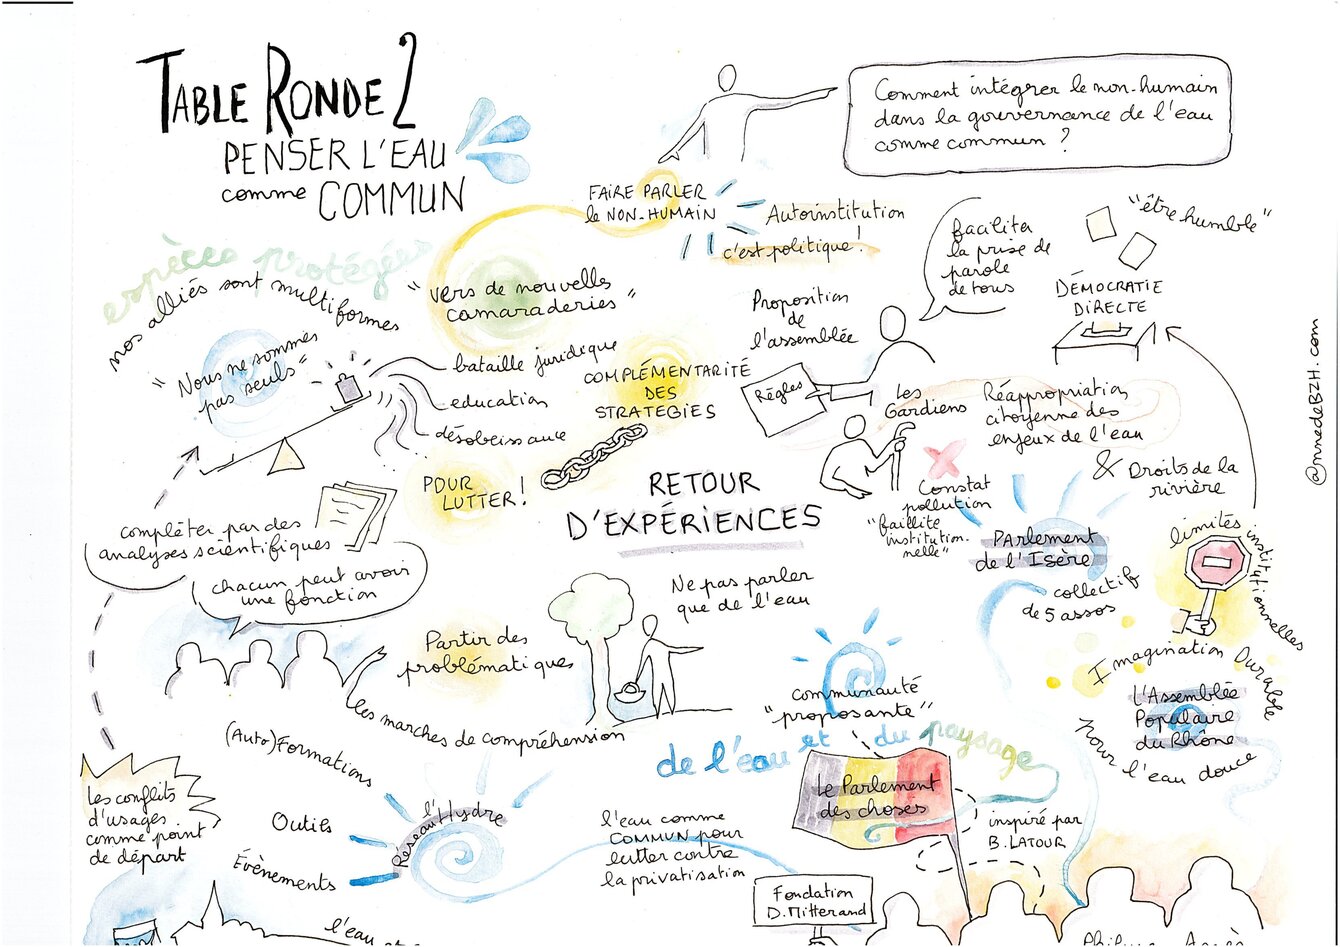 TABLE RONDE 2
PENSER L'EAU
comme COMMUN
Comment intégrer le non-humain
dans la gouvernance de l'eau
comme commun ?
FAIRE PARLER
le NON-HUMAIN
Autoinstitution
c'est politique !
facilita
la prise de
parole
de tous
"être humble"
DÉMOCRATIE
DIRECTE
espèces protégées
nos alliés sont multiformes
"Nous ne sommes
pas seuls"
"vers de nouvelles
camaraderies"
bataille juridique
education
désobeissance
COMPLÉMENTARITÉ
DES
STRATEGIES
POUR
LUTTER !
Proposition
de
l'assemblée
Règles
les
Gardiens
Réappropriation
citoyenne des
enjeux de l'eau
& Droits de la
rivière
Constat
pollution
"faillite
institution-
nelle"
PARlement
de l'Isère
collectif
de 5 assos
limités institutionnelles
RETOUR
D'EXPÉRIENCES
compléter par des
analyses scientifiques
chacun peut avoir
une fonction
Partir des
problématiques
les marches de compréhension
Ne pas parler
que de l'eau
communauté
"proposante"
de l'eau et du paysage
Le Parlement
des choses
inspiré par
B. LATOUR
Fondation
D. Mitterand
Imagination Durable
L'Assemblée
Populaire
du Rhône
pour l'eau douce
Les conflits
d'usages
comme point
de départ
(Auto)Formations
Outils
Évènements
l'
Réseau Hydre
l'eau comme
COMMUN pour
lutter contre
la privatisation
l'eau et
@nnedeBZH.com